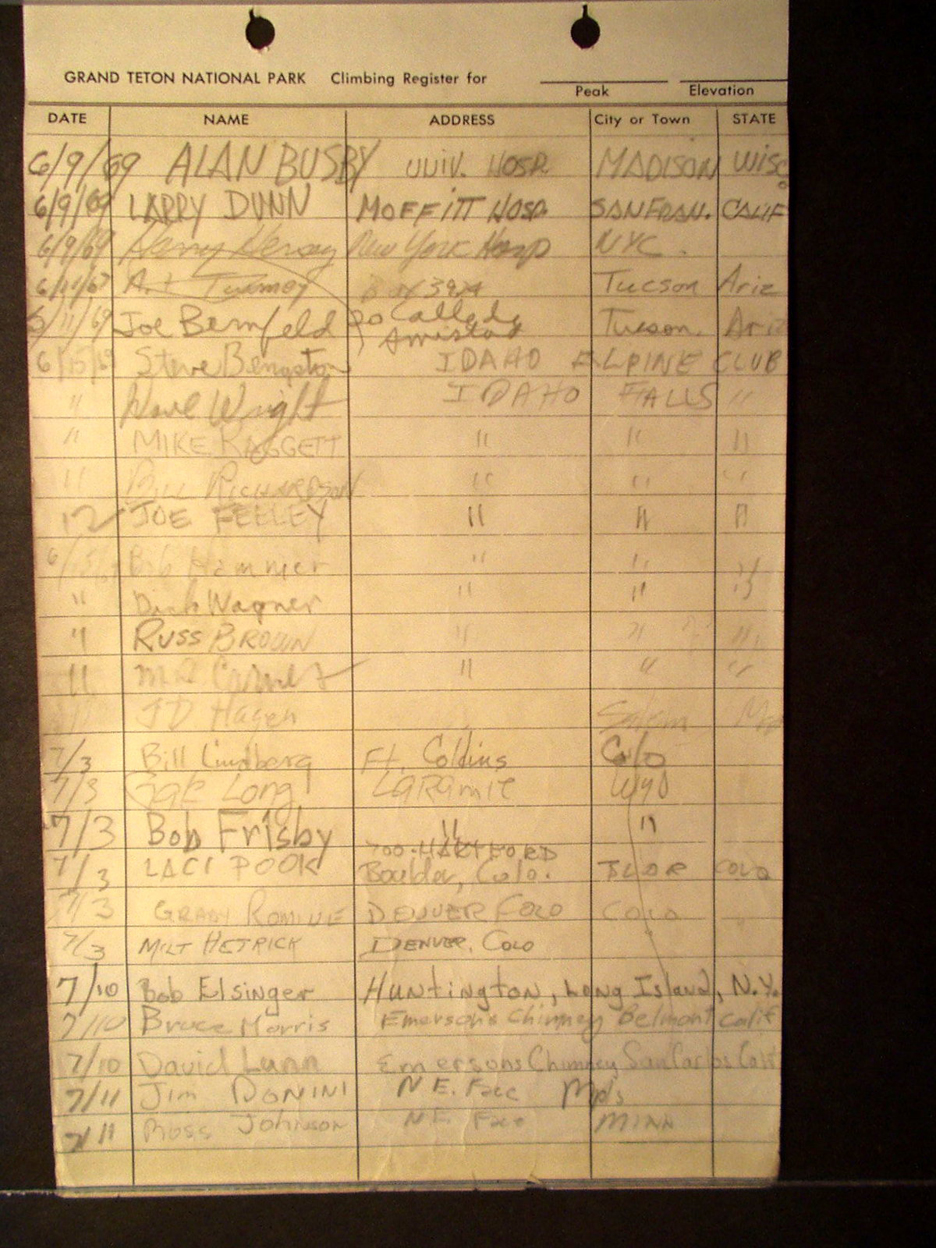 GRAND TETON NATIONAL PARK Climbing Register for
Peak Elevation
DATE NAME ADDRESS City or Town STATE
6/9/69 ALAN BUSBY UNIV. HOSP. MADISON WISC.
6/9/69 LARRY DUNN MOFFITT HOSP. SAN FRAN. CALIF
6/9/69 New York Hosp NYC.
Tucson Ariz
6/11/69 Joe Bernfeld Calle de Amistad Tucson, Ariz
6/15/69 Steve Bengston IDAHO ALPINE CLUB
" Dave Wright IDAHO FALLS "
" MIKE RAGGETT " " "
" BILL RICHARDSON " " "
12 JOE FEELEY " " "
Bob Hammer " " "
" Dick Wagner " " "
" RUSS BROWN " " "
" " " "
JD Hagen Salem
7/3 Bill Lindberg Ft. Collins Colo
7/3 Long LARAmie Wyo
7/3 Bob Frisby " "
700 HARTFORD
7/3 LACI POOK Boulder, Colo. COLO
7/3 GRADY ROMINE DENVER COLO COLO "
7/3 MILT HETRICK DENVER, COLO
7/10 Bob Elsinger Huntington, Long Island, N.Y.
7/10 Bruce Morris Emerson's Chimney Belmont Calif
7/10 David Lunn Emersons Chimney San Carlos Calif
7/11 Jim DONINI N.E. Face Mpls
7/11 Ross Johnson N.E. Face MINN